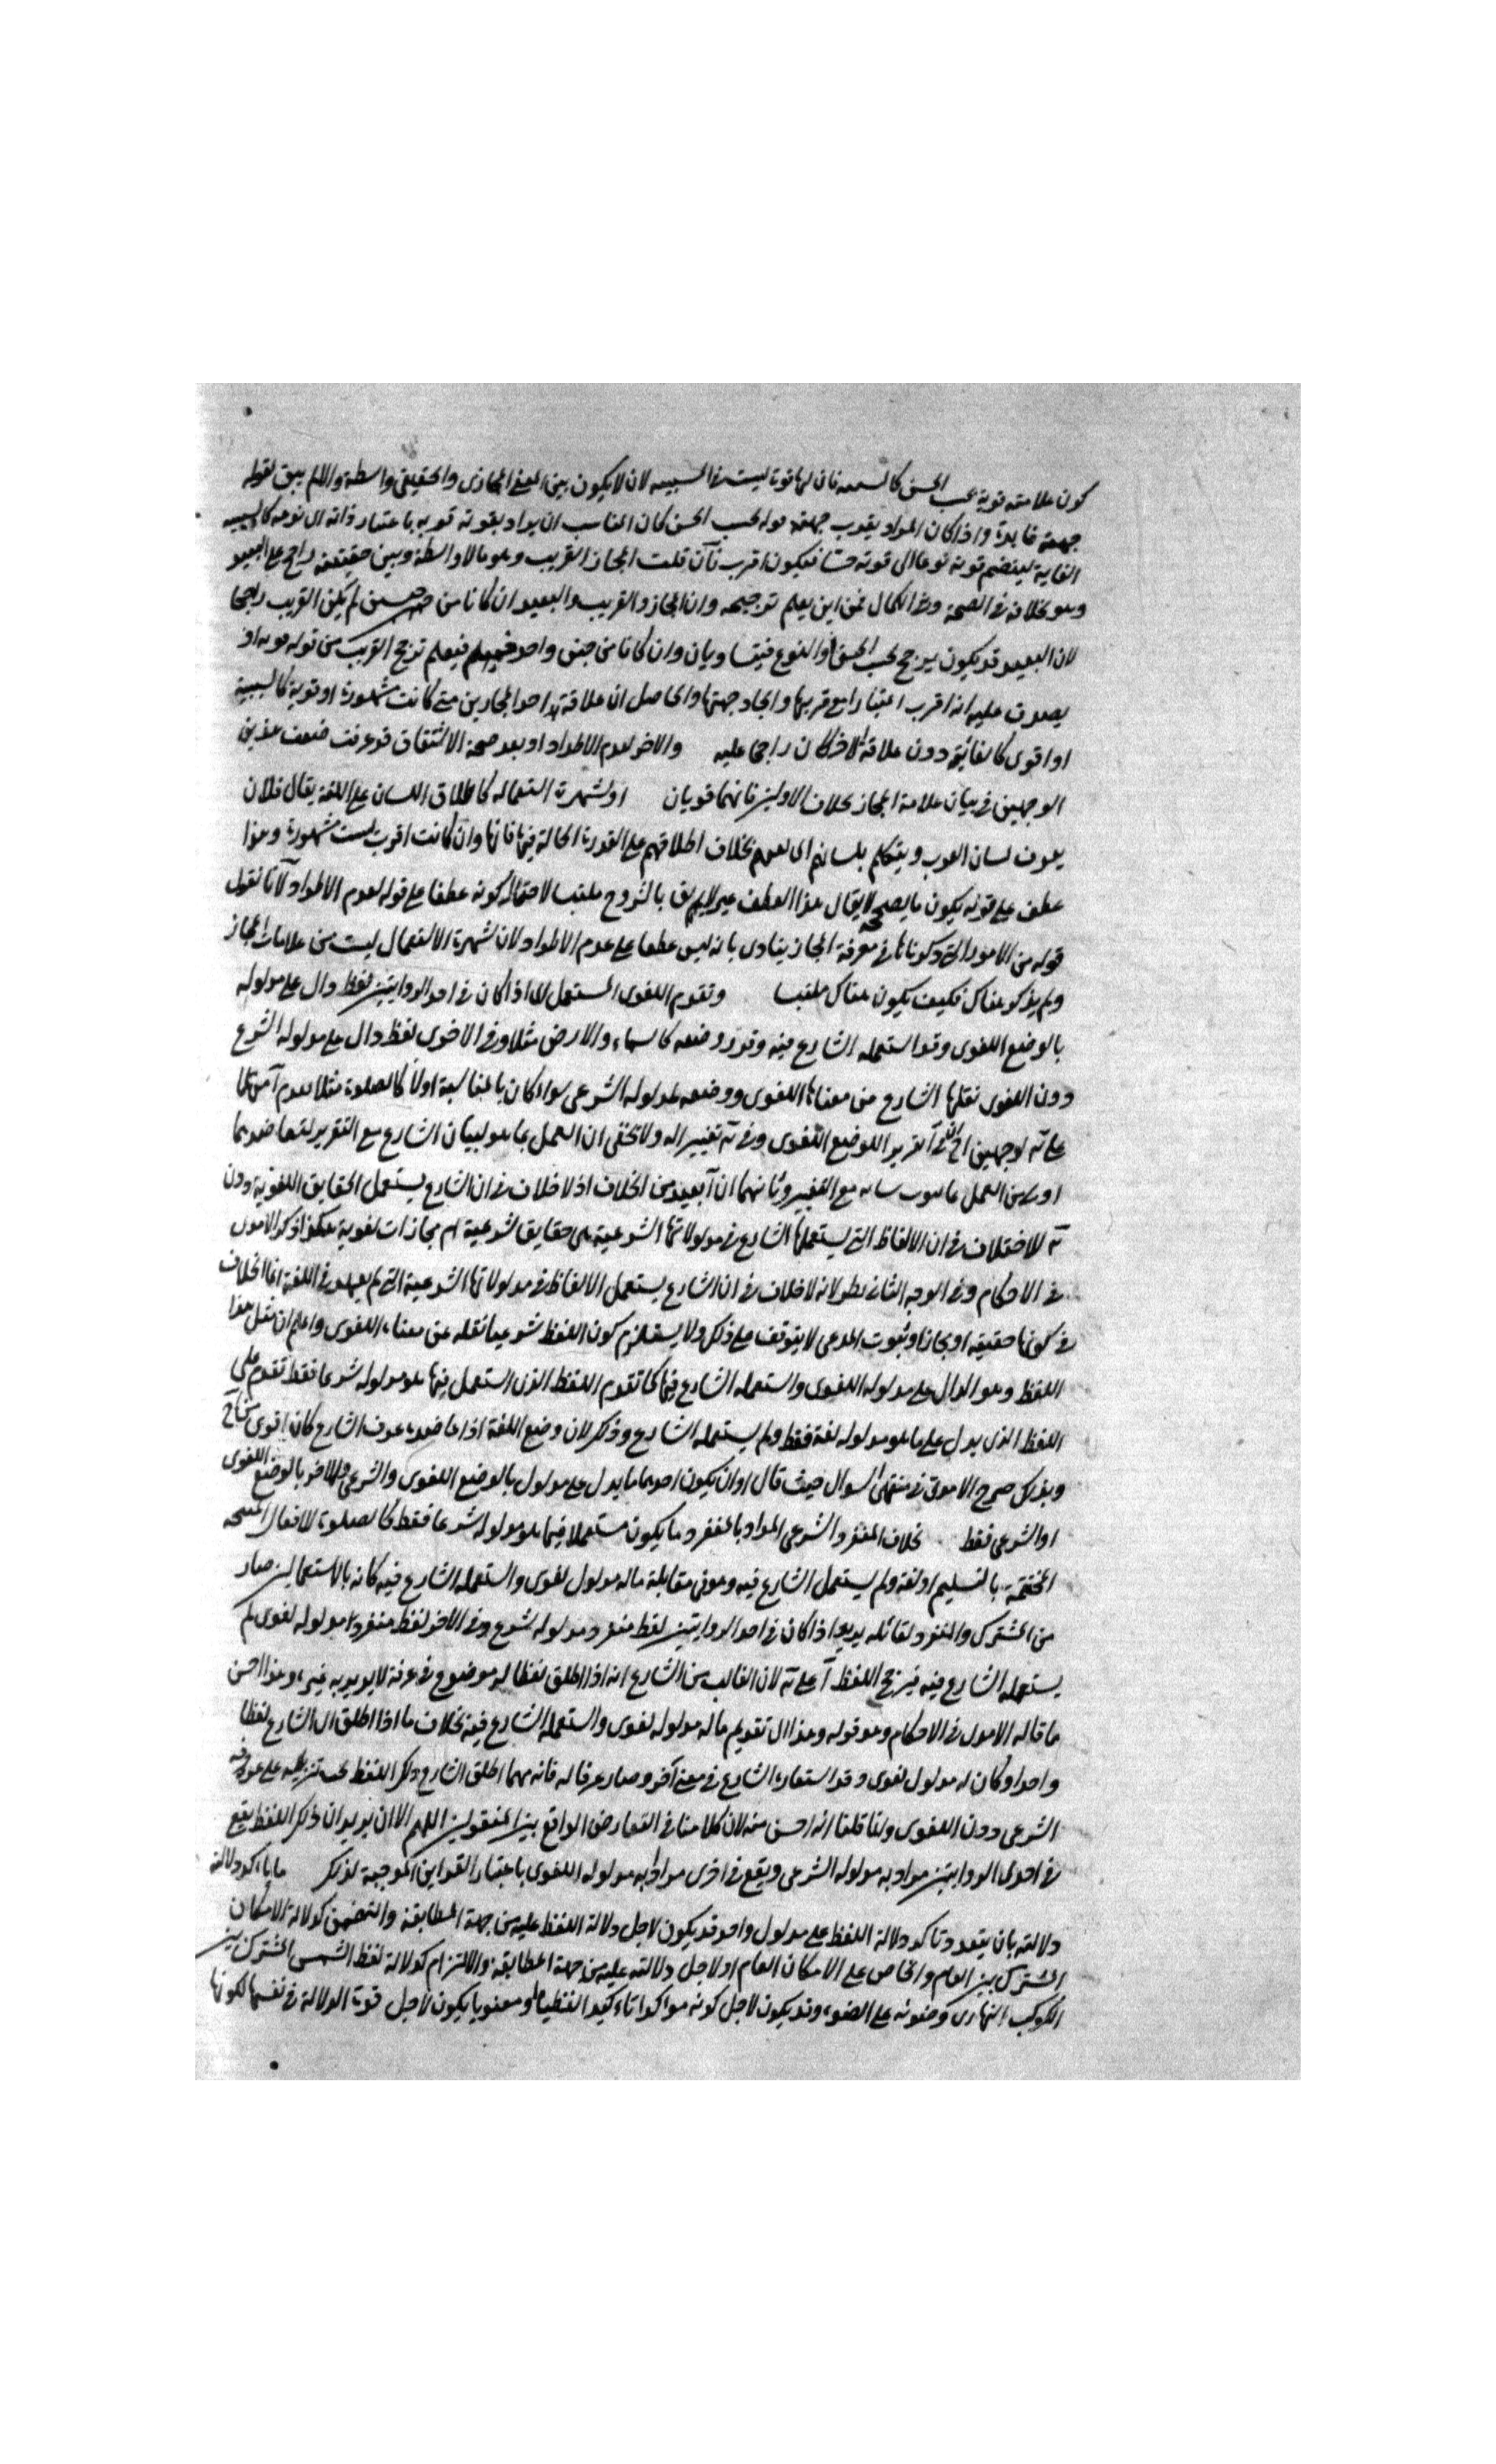 كون علاقته قوية بحسب الجنس كالسببية فان لها قوة ليست في المسببية لان لا يكون بين المعنى المجازي والحقيقي واسطة والا لم يبق لقوله
جهته فايدة واذا كان المراد بقرب جهته قوله بحسب الجنس كان المناسب ان يراد بقوته قوته باعتبار ذاته اى نوعه كالسببية
الغاية لينضم قوته نوعا الى قوته جنسا فيكون اقرب فان قلت المجاز القريب وهو ما لا واسطة بينه وبين حقيقته راجح على البعيد
وهو بخلافه في الصحة وفي الكمال فمن اين يعلم ترجيحه وان المجاز والقريب والبعيد ان كانا من جنسين لم يكن القريب راجحا
لان البعيد قد يكون يترجح بحسب الجنس او النوع فيتساويان وان كانا من جنس واحد فيعلم ترجح القريب من قوله قوته اذ
يصدق عليه انه اقرب اعتبارا مع قربها واتحاد جهتها والحاصل ان علاقة احد المجازين متى كانت مشهورة او قوية كالسببية
او اقوى كالغائية دون علاقة الاخر كان راجحا عليه والاخر لعدم الاطراد او بعد صحة الاشتقاق قد عرفت ضعف هذين
الوجهين في بيان علامة المجاز بخلاف الاولين فانهما قويان او لشهرة استعماله كاطلاق اللسان على اللغة يقال فلان
يعرف لسان العرب ويتكلم بلسانهم اى لغتهم بخلاف اطلاقهم على القدرة الحالة فيها فانها وان كانت اقرب ليست مشهورة وهذا
عطف على قوله يكون ما يصححه لا يقال هذا العطف غير لايق بالشروح ملتبسا لاحتمال كونه عطفا على قوله لعدم الاطراد لانا نقول
قوله من الامور التي ذكرناها في معرفة المجاز ينادى بانه ليس عطفا على عدم الاطراد لان شهرة الاستعمال ليست من علامات المجاز
ولم يذكر هناك فكيف يكون هناك ملتبسا وتقدم اللغوى المستعمل اى اذا كان في احد الروايتين لفظ دال على مدلوله
بالوضع اللغوى وقد استعمله الشارع فيه وقرر وضعه كالسماء والارض مثلا وفي الاخرى لفظ دال على مدلوله الشرع
دون اللغوى نقلها الشارع من معناها اللغوى ووضعه لمدلوله الشرعى سواء كان بالمناسبة اولا كالصلوة مثلا
لوجهين تقرير اللوضع اللغوى وفي تغيير له ولا يخفى ان العمل بما هو لبيان الشارع مع التقرير لتعاضدهما
اولى من العمل بما هو مع التغيير وثانيهما ان آ بعيد من الخلاف اذ لا خلاف في ان الشارع يستعمل الحقايق اللغوية دون
للاختلاف في ان الالفاظ التى يستعملها الشارع في مدلولاتها الشرعية هى حقايق شرعية ام مجازات لغوية هكذا ذكر الآمدى
في الاحكام وفي الوجه الثانى نظر لانه لا خلاف في ان الشارع يستعمل الالفاظ في مدلولاتها الشرعية التى لم يعهد في اللغة انما الخلاف
في كونها حقيقة او مجازا وثبوت المدعى لا يتوقف على ذلك ولا يستلزم كون اللفظ شرعيا نقله عن معناه اللغوى واعلم ان مثل هذا
اللفظ وهو الدال على مدلوله اللغوى واستعمله الشارع فيها كما تقدم اللفظ الذى استعمل فيها هو مدلوله شرعا فقط تقدم على
اللفظ الذى يدل على ما هو مدلوله لغة فقط ولم يستعمله الشارع وذلك لان وضع اللغة اذا عاضده عرف الشارع كان اقوى
وبذلك صرح الآمدى في منتهى السول حيث قال او ان يكون احدهما ما يدل على مدلول بالوضع اللغوى والشرعى والاخر بالوضع اللغوى
او الشرعى فقط بخلاف المنفرد الشرعى المراد بالمنفرد ما يكون مستعملا فيما هو مدلوله شرعا فقط كالصلوة للافعال
المختتمة بالتسليم او لغة ولم يستعمل الشارع فيه وهو في مقابلة ماله مدلول لغوى واستعمله الشارع فيه كانه بالاستعمالين صار
من المشترك والمنفرد لقائله يريد اذا كان في احد الروايتين لفظ منفرد مدلوله شرع وفي الاخر لفظ منفرد مدلوله لغوى لم
يستعمله الشارع فيه فيرجح اللفظ لان الغالب من الشارع انه اذا اطلق لفظا له موضوع في عرفه لا يريد به غيره وهذا احسن
ما قاله الآمدى في الاحكام وهو قوله وهذا اى تقديم ماله مدلول لغوى واستعمله الشارع فيه بخلاف ما اذا اطلق اى الشارع لفظا
واحدا وكان له مدلول لغوى وقد استعاره الشارع في معنى آخر وصار عرفا له فانه مهما اطلق الشارع ذلك اللفظ يجب تنزيله على عرفه
الشرعى دون اللغوى وانما قلنا انه احسن منه لان كلامنا في التعارض الواقع بين المنقولين اللهم الا ان يريد ان ذلك اللفظ يقع
في احدى الروايتين مراد به مدلوله الشرعى ويقع في اخرى مرادا به مدلوله اللغوى باعتبار القراين الموجبة لذلك ما تاكد دلالته
دلالته بان يتعدد وتاكد دلالة اللفظ على مدلول واحد قد يكون لاجل دلالة اللفظ عليه من جهة المطابقة والتضمن كدلالة الامكان
المشترك بين العام والخاص على الامكان العام او لاجل دلالته عليه من جهة المطابقة والالتزام كدلالة لفظ الشمس المشترك بين
الكوكب النهارى وضوئه على الضوء وقد يكون لاجل كونه مؤكدا تاكيدا لفظيا او معنويا يكون لاجل قوة الدلالة في نفسها لكونها